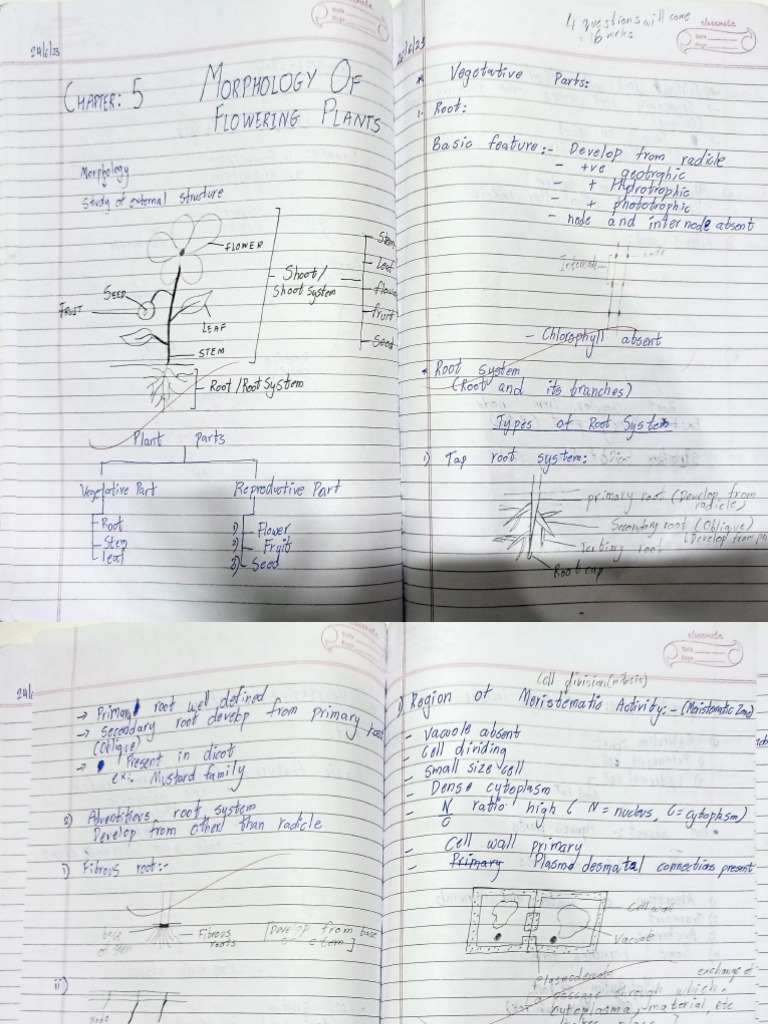 24/6/23
classmate
Date
Page
CHAPTER: 5 MORPHOLOGY OF
FLOWERING PLANTS
Morphology
Study of external structure
FLOWER
SEED
FRUIT
LEAF
STEM
Shoot/
Shoot System
Stem
Leaf
flower
fruit
Seed
Root/Root System
Plant Parts
Vegetative Part
Root
Stem
Leaf
Reproductive Part
1) Flower
2) Fruit
3) Seed
4 questions will come
= 6 marks
classmate
Date
Page
26/6/23
* Vegetative Parts:
1. Root:
Basic feature:- Develop from radicle
- +ve geotrophic
- + Hydrotrophic
- + phototrophic
- node and internode absent
Internode
node
- Chlorophyll absent
* Root system
(Root and its branches)
Types of Root System
1) Tap root system:
primary root (Develop from
radicle)
Secondary root (Oblique)
[Develop from
Root cap
classmate
Date
Page
24/
→ Primary root well defined
→ Secondary root develop from primary root
(Oblique)
→ Present in dicot
ex:. Mustard family
2) Adventitious root system
Develop from other than radicle
1) Fibrous root:-
base
of stem
Fibrous
roots
[Develop from base
of stem]
ii)
Node
classmate
Date
Page
Cell division(mitosis)
1) Region of Meristematic Activity:- (Meristematic Zone)
- Vacuole absent
- Cell dividing
- Small size cell
- Dense cytoplasm
- N/C ratio high ( N = nucleus, C = cytoplasm)
- Cell wall primary
- Primary Plasmodesmatal connections present
Cell wall
Vacuole
exchange of
a passage through which
cytoplasma, material, etc